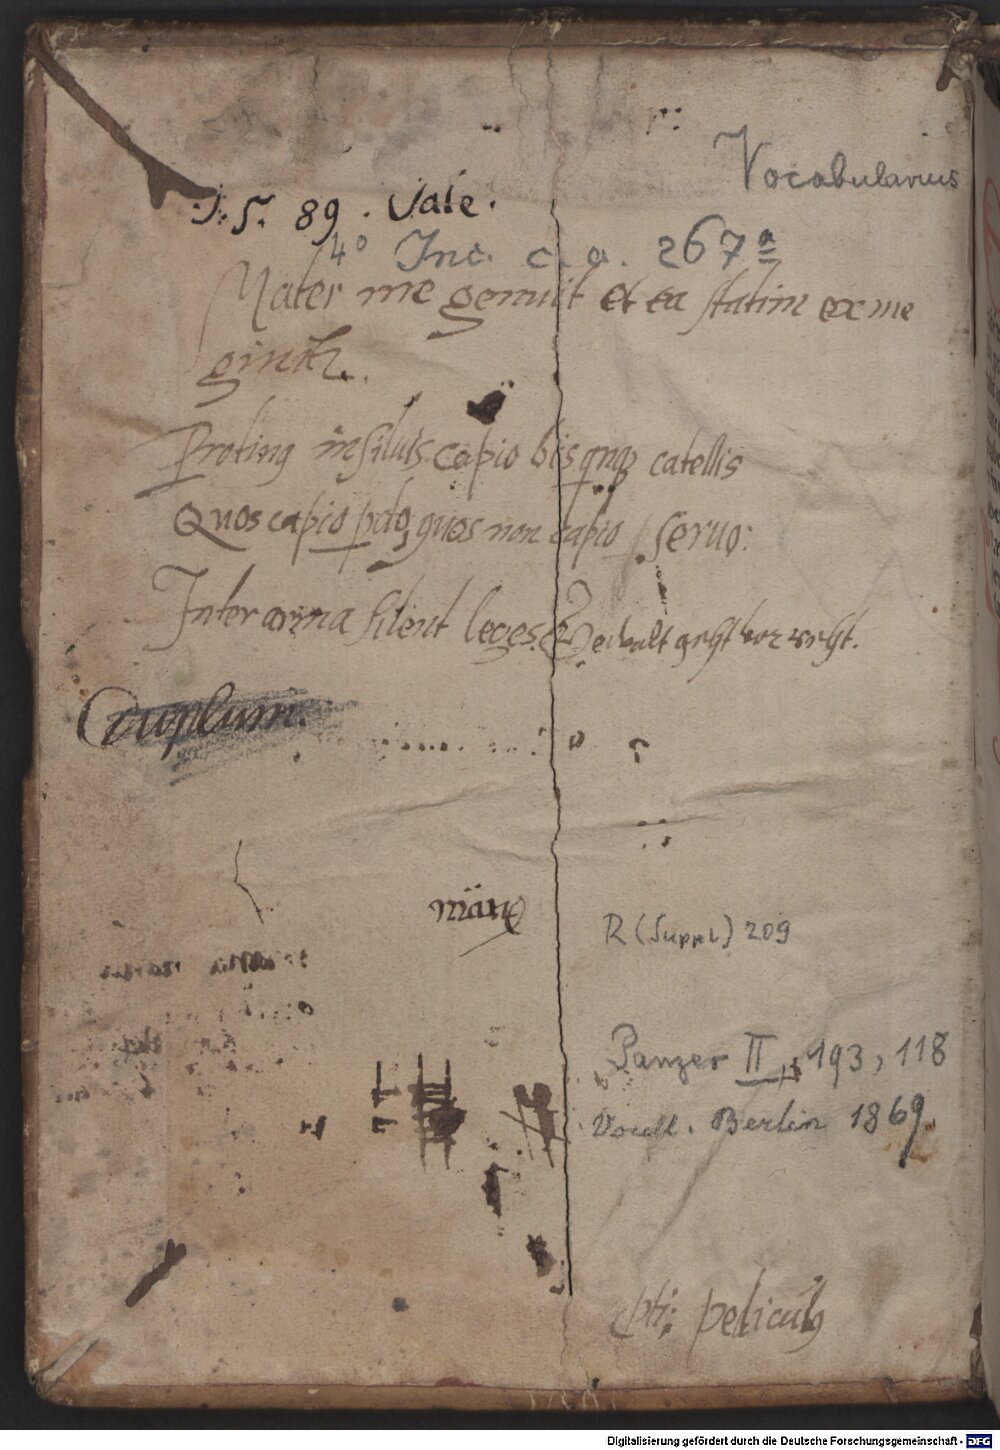 Vocabularius
1589. Vale.
4° Inc. c. a. 267ª
Mater me genuit et ea statim ex me
ginitr.
Protinus in siluis capio bis qnqȝ catellis
Quos capio pdo, quos non capio seruo:
Inter arma silent leges. Gewalt geht vor recht.
Duplum.
R (Suppl) 209
Panzer II, 193, 118
Voull. Berlin 1869.
peliculus
Digitalisierung gefördert durch die Deutsche Forschungsgemeinschaft - DFG